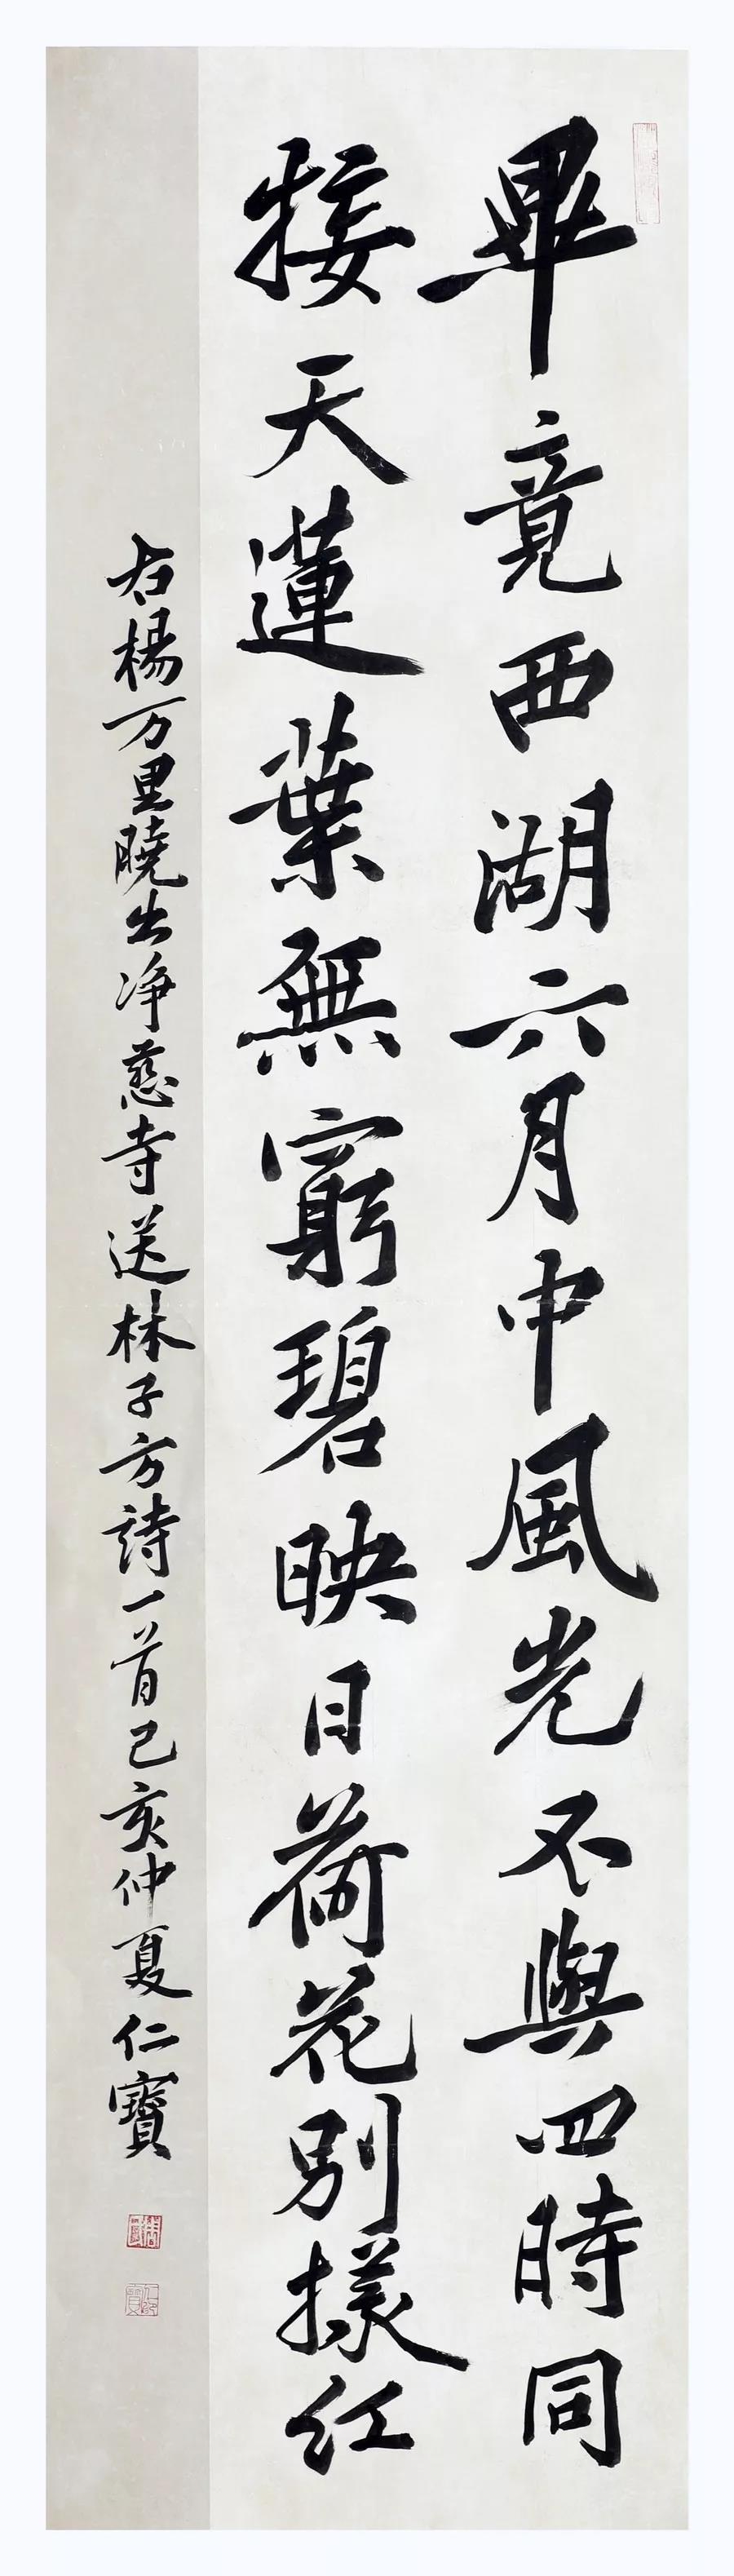 畢竟西湖六月中風光不與四時同
接天蓮葉無窮碧映日荷花別樣紅
右楊万里曉出净慈寺送林子方詩一首己亥仲夏仁寶